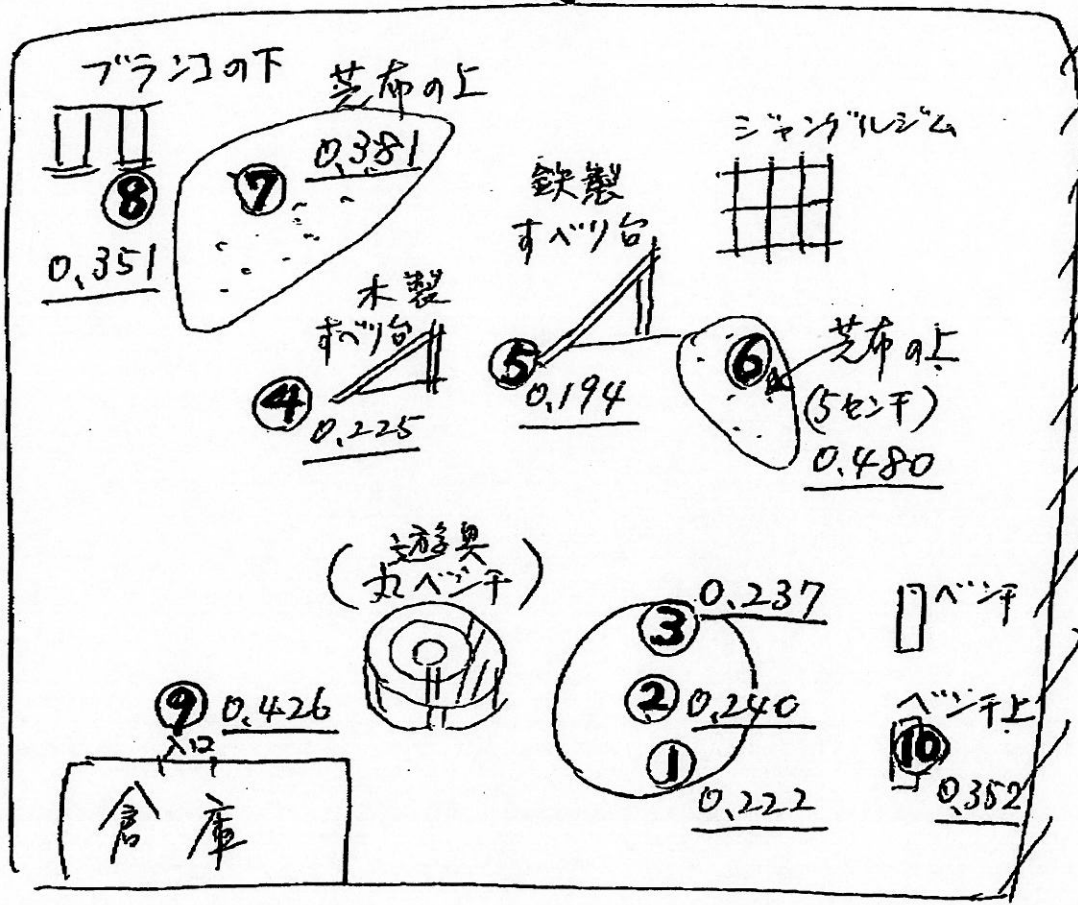 ブランコの下
芝布の上
⑦
0.381
⑧
0.351
ジャングルジム
鉄製
すべり台
木製
すべり台
⑤
0.194
④
0.225
⑥
芝布の上
(5センチ)
0.480
(遊具
丸ベンチ)
③
0.237
②
0.240
①
0.222
ベンチ
ベンチ上
⑩
0.352
⑨
0.426
入口
倉庫